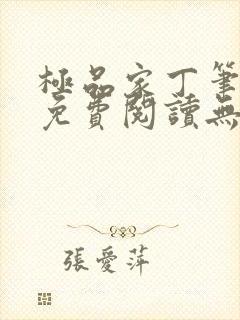 極品家丁筆
免費閱讀無
張愛萍